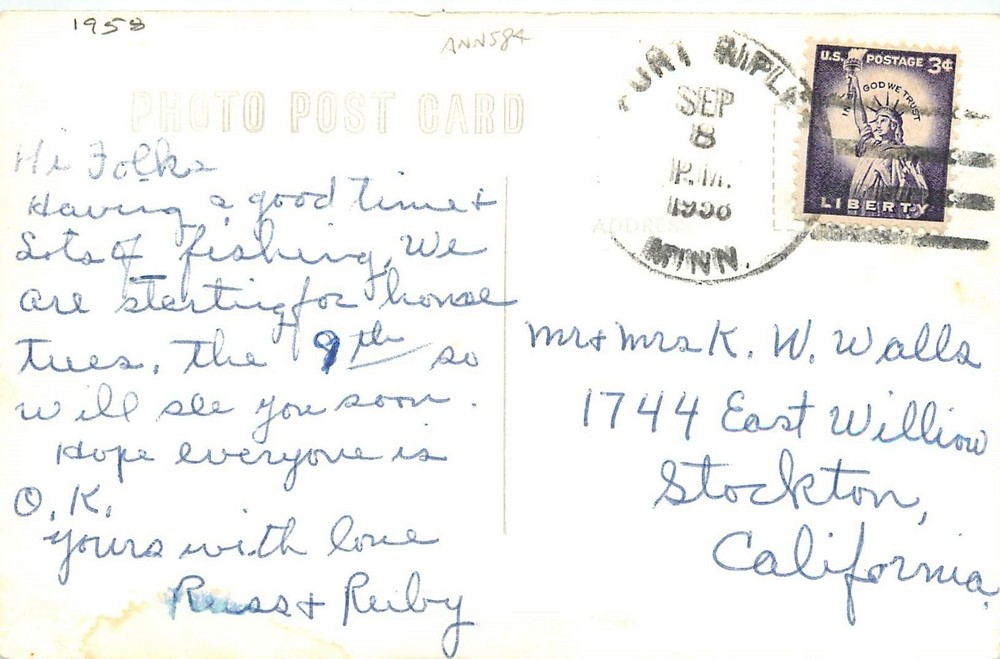 1958
ANN584
PHOTO POST CARD
Hi Folks
Having a good time &
Lots of fishing, We
are starting for home
tues, the 9th so
will see you soon.
Hope everyone is
O.K.
yours with love
Russ & Ruby
FORT RIPLEY
SEP
8
P.M.
1958
MINN.
ADDRESS
U.S. POSTAGE 3¢
IN GOD WE TRUST
LIBERTY
Mr & Mrs K. W. Walls
1744 East Williow
Stockton,
California.